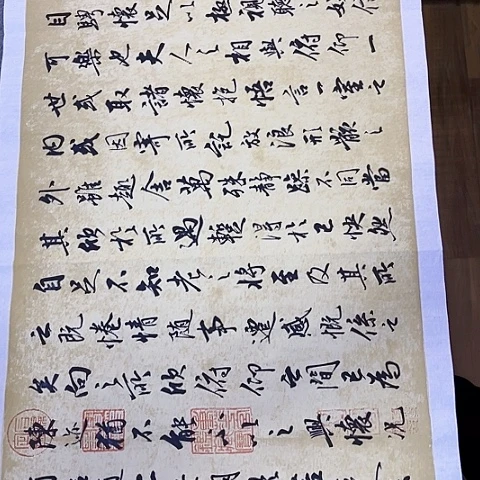 目騁懷足以極視聽之娛信
可樂也夫人之相與俯仰一
世或取諸懷抱悟言一室之
内或因寄所託放浪形骸之
外雖趣舍萬殊静躁不同當
其欣於所遇暫得於己快然
自足不知老之將至及其所
之既惓情随事遷感慨係之
矣向之所欣俯仰之間已為
陳迹猶不能不以之興懷况